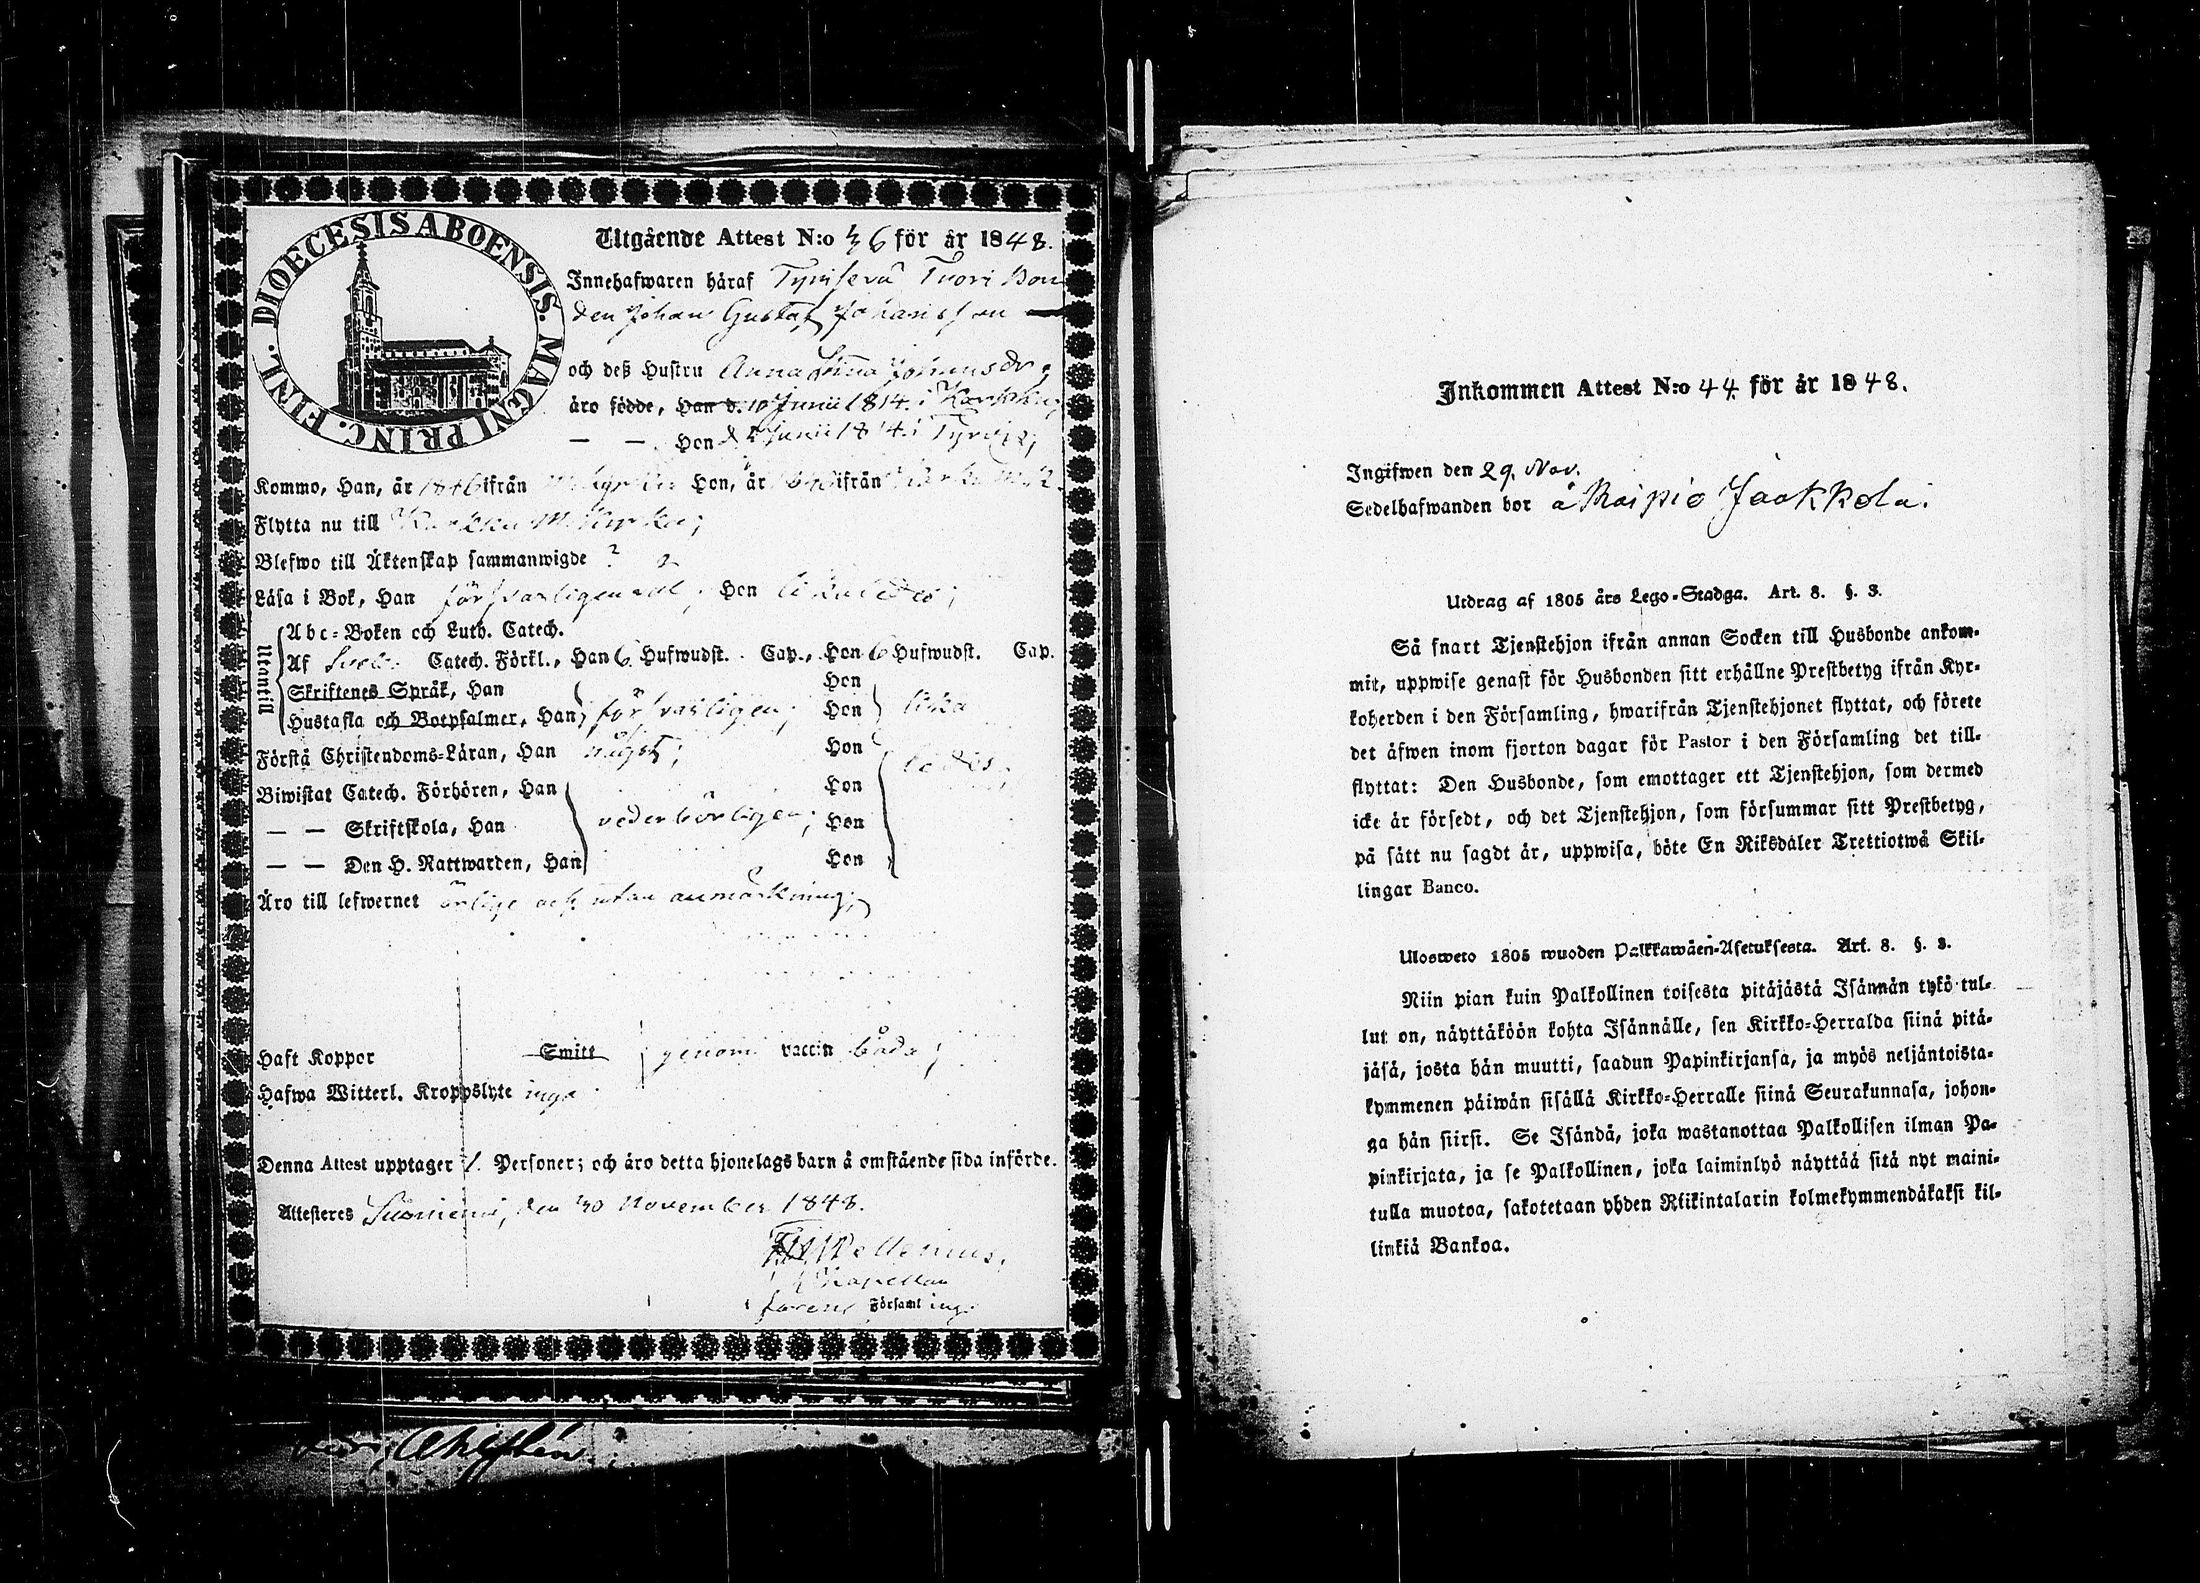 DIOECESIS ABOENSIS. MAGNI PRINC. FINL.
Utgående Attest N:o 36 för år 1848.
Innehafwaren häraf Tuori Bon
den Johan Gustaf Johansson
och deß Hustru Anna Johansdr,
äro födde, Han d. 10 Junii 1814. i Karkku,
— — Hon d. Junii 18
Kommo, Han, år 1846 ifrån Hon, år ifrån
Flytta nu till Karkku M. Kyrka;
Blefwo till Äktenskap sammanwigde ?
Läsa i Bok, Han försvarligen väl, Hon likaledes;
Utantill
Abc-Boken och Luth. Catech.
Af Sveb. Catech. Förkl., Han 6 Hufwudst. Cap., Hon 6 Hufwudst. Cap.
Skriftenes Språk, Han Hon
Hustafla och Botpsalmer, Han försvarligen; Hon lika
Förstå Christendoms-Läran, Han något; Hon ledes;
Biwistat Catech. Förhören, Han Hon
— — Skriftskola, Han vederbörligen; Hon
— — Den H. Nattwarden, Han Hon
Äro till lefwernet ärlige och utan anmärkning;
Haft Koppor Smitt genom vaccin båda;
Hafwa Witterl. Kroppslyte inga
Denna Attest upptager Personer; och äro detta hjonelags barn å omstående sida införde.
Attesteres Suoniemi, den 30 November 1848.
Wellenius,
Kapellan
Församl ing.
Ahlstén
Inkommen Attest N:o 44 för år 1848.
Ingifwen den 29. Nov.
Sedelhafwanden bor å Raipio Jaakkola.
Utdrag af 1805 års Lego-Stadga. Art. 8. §. 3.
Så snart Tjenstehjon ifrån annan Socken till Husbonde ankom-
mit, uppwise genast för Husbonden sitt erhållne Prestbetyg ifrån Kyr-
koherden i den Församling, hwarifrån Tjenstehjonet flyttat, och förete
det äfwen inom fjorton dagar för Pastor i den Församling det till-
flyttat: Den Husbonde, som emottager ett Tjenstehjon, som dermed
icke är försedt, och det Tjenstehjon, som försummar sitt Prestbetyg,
på sätt nu sagdt är, uppwisa, böte En Riksdaler Trettiotwå Skil-
lingar Banco.
Ulosweto 1805 wuoden Palkkawäen-Asetuksesta. Art. 8. §. 3.
Niin pian kuin Palkollinen toisesta pitäjästä Isännän tykö tul-
lut on, näyttäköön kohta Isännälle, sen Kirkko-Herralda siinä pitä-
jäsä, josta hän muutti, saadun Papinkirjansa, ja myös neljäntoista-
kymmenen päiwän sisällä Kirkko-Herralle siinä Seurakunnasa, johon-
ga hän siirsi. Se Isändä, joka wastanottaa Palkollisen ilman Pa-
pinkirjata, ja se Palkollinen, joka laiminlyö näyttää sitä nyt maini-
tulla muotoa, sakotetaan yhden Riikintalarin kolmekymmendäkaksi kil-
linkiä Bankoa.